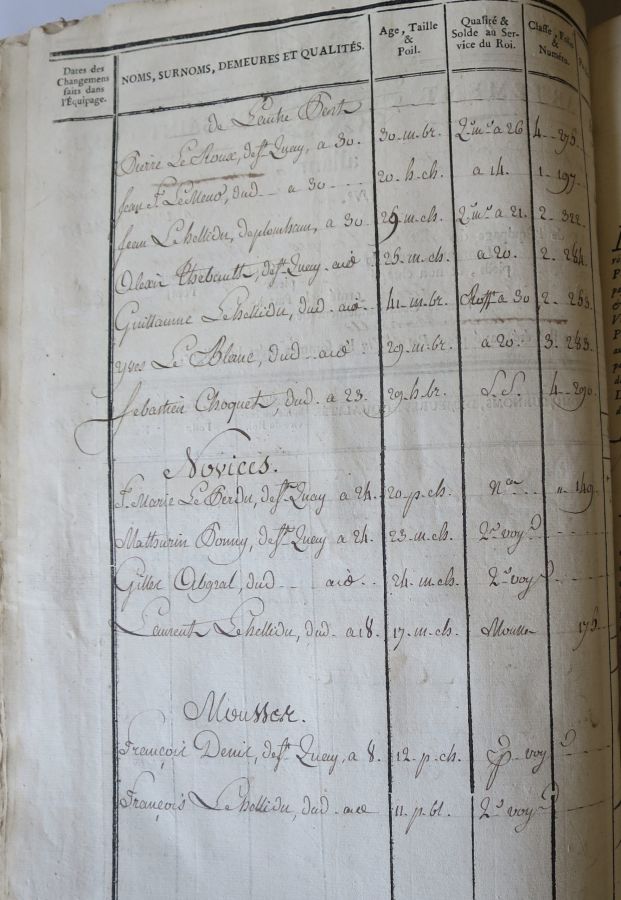 Dates des Changemens faits dans l'Équipage. NOMS, SURNOMS, DEMEURES ET QUALITÉS. Age, Taille & Poil. Qualité & Solde au Service du Roi. Classe, Folio & Numéro.
de L'autre Part
Pierre Le Roux, de St. Quay, a 30. 30. m. br. 2. m. a 26 4 275.
Jean F. Le Meno, dud. a 30 20. h. ch. a 14. 1. 197.
Jean Le hellidu, de plouhan, a 30 26 m. ch. 2. m. a 21. 2. 322.
Alexis Thebault, de St. Quay aid 25. m. ch. a 20. 2. 264.
Guillaume Le hellidu, dud. aid 41. m. br. a 30 2. 253.
Yves Le Blanc, dud. aid 29. m. br. a 20. 3. 253.
Sebastien Choquet, dud. a 23. 29. h. br. 4. 290.
Novices.
f. Marie Le Perdu, de St. Quay a 24. 20. p. ch. n. ce " 149.
Mathurin Bonny, de St. Quay a 24. 23. m. ch. 2. voy.
Gilles Abgral, dud. aid 24. m. ch. 2. voy.
Laurent Le hellidu, dud. a 18. 17. m. ch. Mousse 175.
Mousses.
François Denis, de St. Quay, a 8. 12. p. ch. voy.
François Le hellidu, dud. aid 11. p. bl. 2. voy.